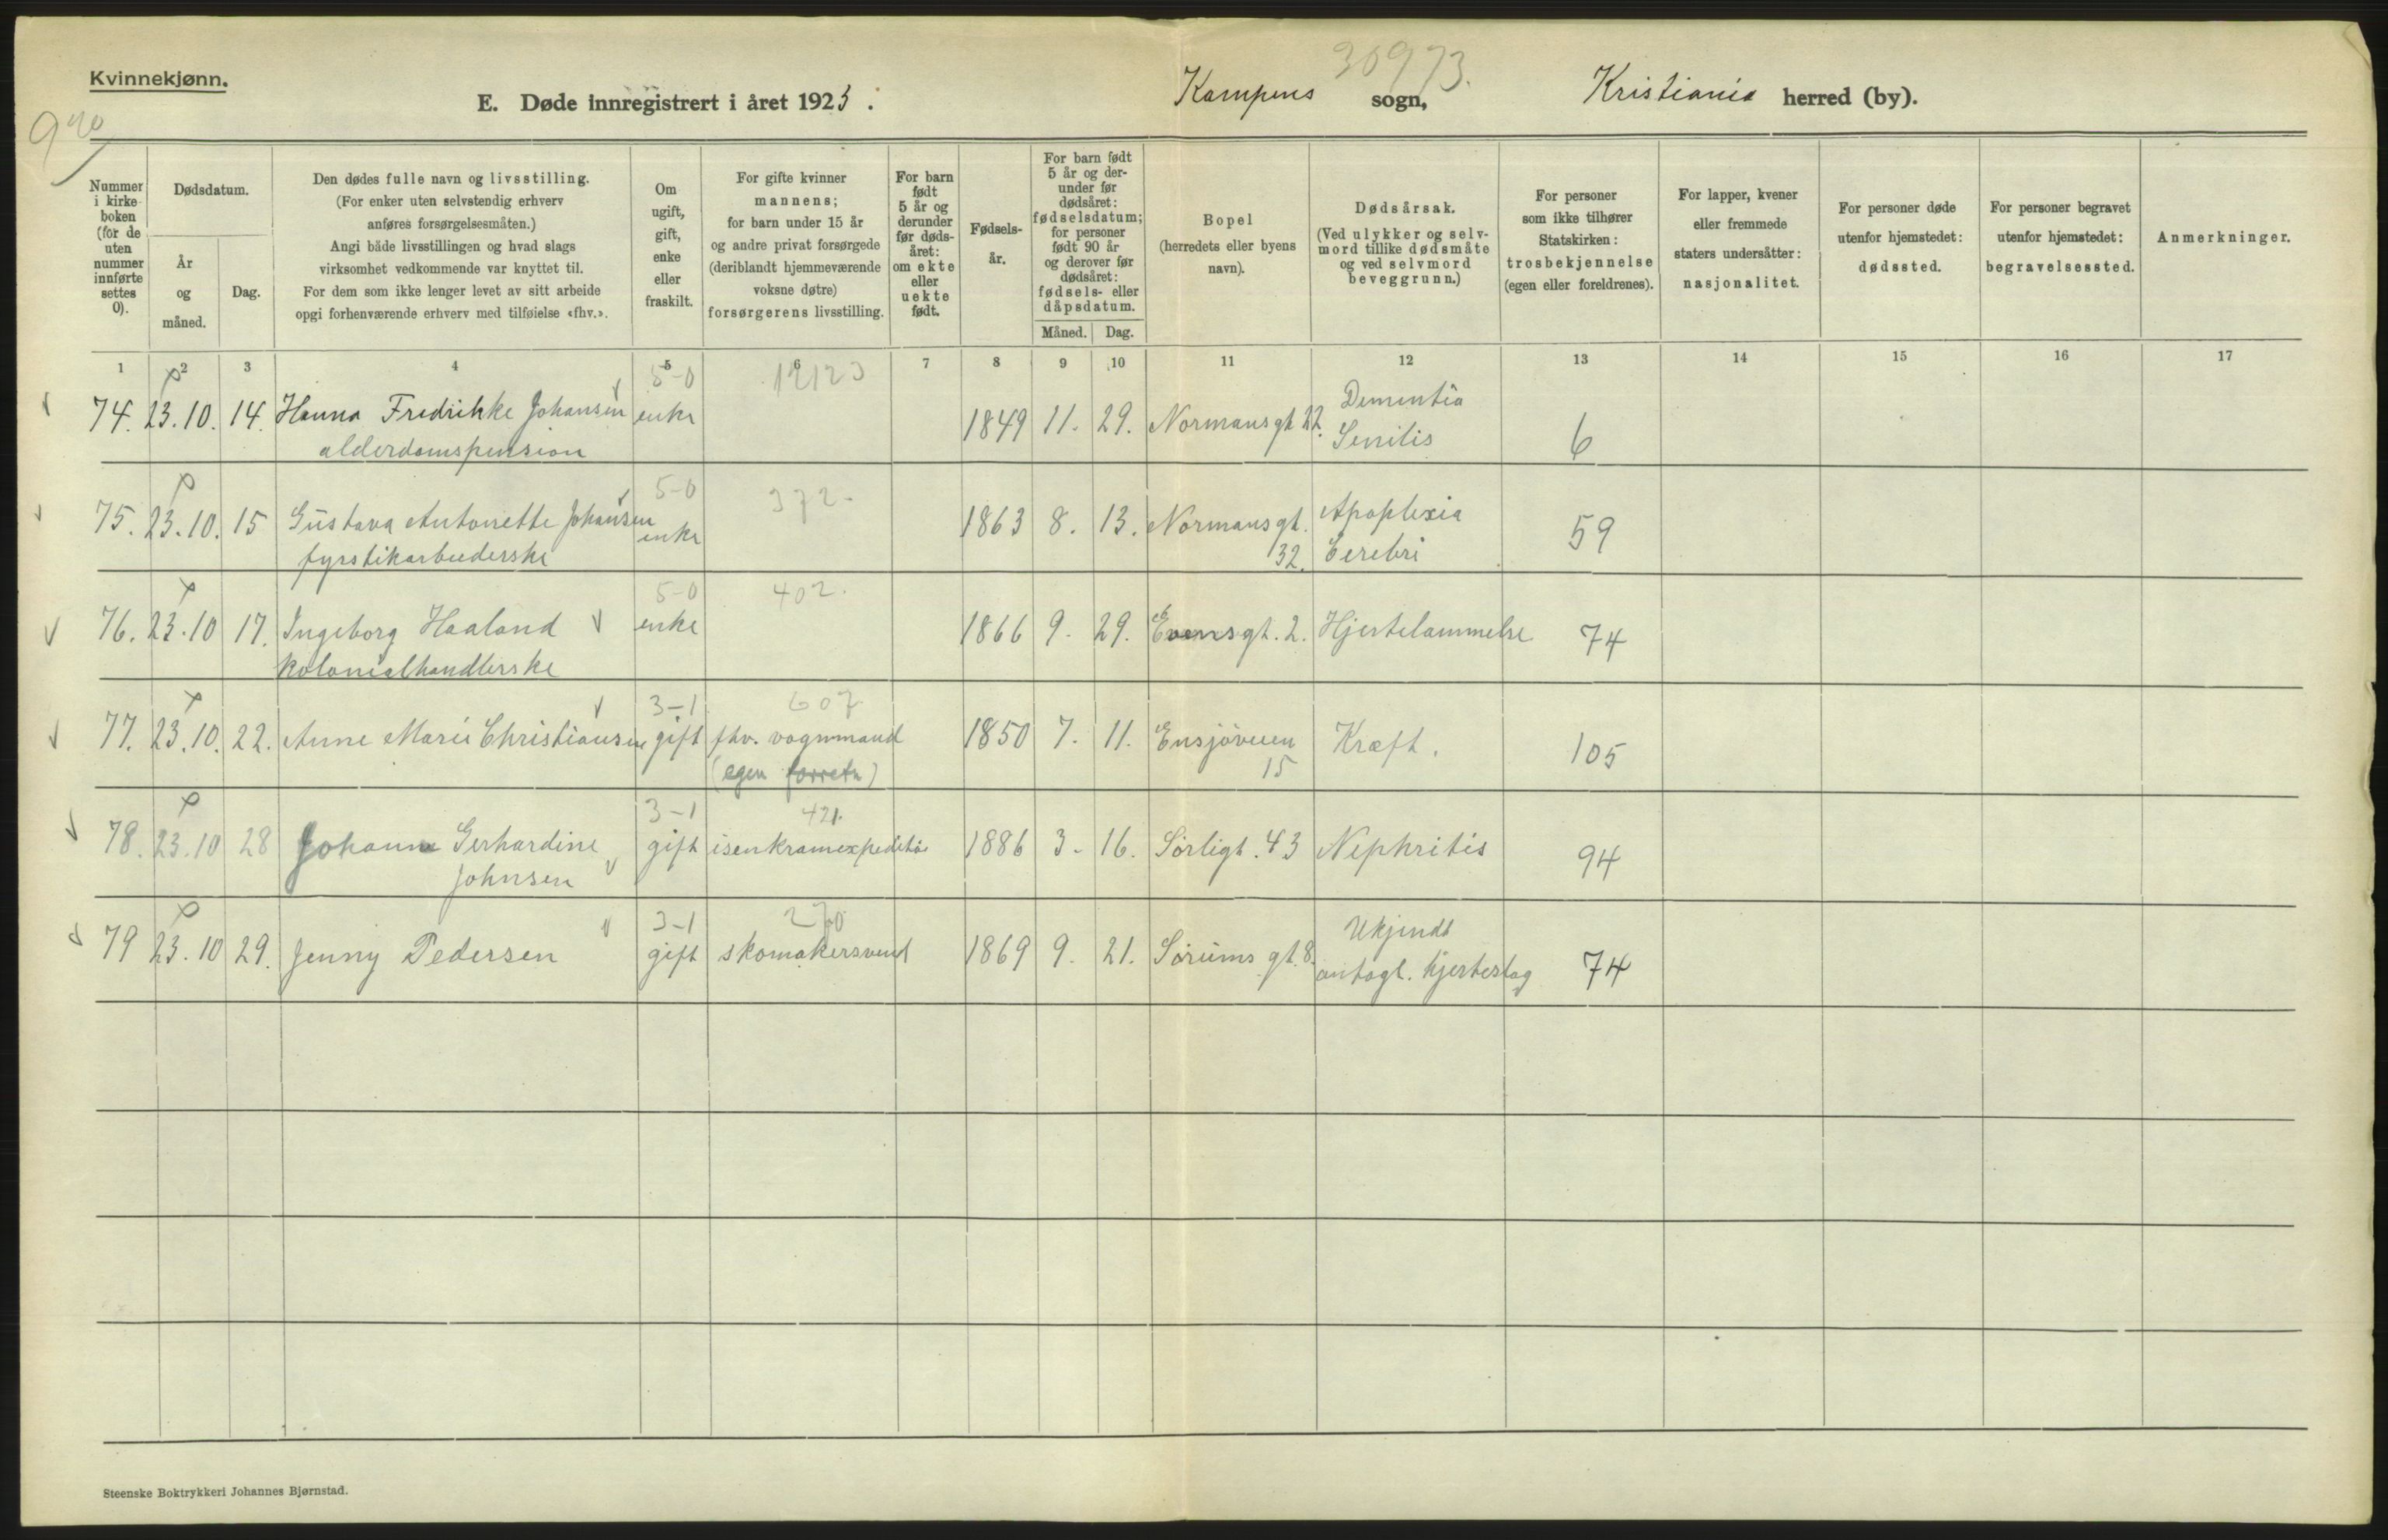 Kvinnekjønn.
E. Døde innregistrert i året 1923.
Kampens sogn,
30973.
Kristiania herred (by).
940
Nummer i kirke- boken (for de uten nummer innførte settes 0).
Dødsdatum.
År og måned.
Dag.
Den dødes fulle navn og livsstilling.
(For enker uten selvstendig erhverv
anføres forsørgelsesmåten.)
Angi både livsstillingen og hvad slags
virksomhet vedkommende var knyttet til.
For dem som ikke lenger levet av sitt arbeide
opgi forhenværende erhverv med tilføielse «fhv.».
Om ugift, gift, enke eller fraskilt.
For gifte kvinner
mannens;
for barn under 15 år
og andre privat forsørgede
(deriblandt hjemmeværende
voksne døtre)
forsørgerens livsstilling.
For barn født 5 år og derunder før døds- året: om ekte eller uekte født.
Fødsels- år.
For barn født 5 år og der- under før dødsåret: fødselsdatum; for personer født 90 år og derover før dødsåret: fødsels- eller dåpsdatum.
Måned. Dag.
Bopel
(herredets eller byens
navn).
Dødsårsak.
(Ved ulykker og selv-
mord tillike dødsmåte
og ved selvmord
beveggrunn.)
For personer
som ikke tilhører
Statskirken:
trosbekjennelse
(egen eller foreldrenes).
For lapper, kvener
eller fremmede
staters undersåtter:
nasjonalitet.
For personer døde
utenfor hjemstedet:
dødssted.
For personer begravet
utenfor hjemstedet:
begravelsessted.
Anmerkninger.
1 2 3 4 5 6 7 8 9 10 11 12 13 14 15 16 17
5-0 12123
74. 23.10. 14. Hanna Fredrikke Johansen enke 1849 11. 29. Normansgt 22. Dementia
alderdomspension Senilis 6
5-0 372.
75. 23.10. 15 Gustava Antonette Johansen enke 1863 8. 13. Normansgt. Apoplexia
fyrstikarbeiderske 32. Cerebri 59
5-0 402.
76. 23.10 17. Ingeborg Haaland enke 1866 9. 29. Evensgt. 2. Hjertelammelse 74
kolonialhandlerske
3-1 607
77. 23.10. 22. Anne Marie Christiansen gift fhv. vognmand 1850 7. 11. Ensjöveien Kræft. 105
(egen forretn) 15
3-1 421.
78. 23.10 28 Johanne Gerhardine gift isenkramexpeditör 1886 3- 16. Sörligt. 43 Nephritis 94
Johnsen
3-1 270
79 23.10 29. Jenny Pedersen gift skomakersvend 1869 9. 21. Sörums gt. 8. Ukjendt
antagl. hjerteslag 74
Steenske Boktrykkeri Johannes Bjørnstad.